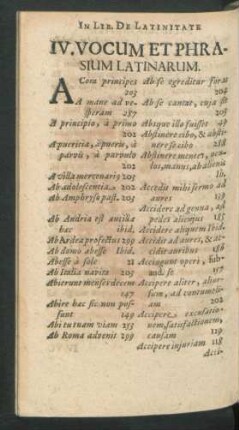 IN LIB. DE LATINITATE
IV. VOCUM ET PHRA-
SIUM LATINARUM.
A Cora principes
203
A mane ad ve-
speram 287
A principio, à primo
202
A pueritia, à puerio, à
parvo, à parvulo
202
A villa mercenario 205
Ab adolescentia. 202
Ab Amphryso past. 205
Ab Andria est ancilla
hac ibid.
Ab Ardea profectus 299
Ab domo abesse Ibid.
Abesse à sole 21
Ab Italia navire 205
Abierunt menses decem
147
Abire hac sic non pos-
sunt 149
Abi tu nam viam 255
Ab Roma advenit 299
Ab se egreditur foras
204
Ab se cantat, cuja sit
209
Absque illo fuisset 49
Abstinere cibo, & absti-
nere se cibo 218
Abstinere mentem, ocu-
los, manus, ab alienis
ib.
Accedit mihi sermo ad
aures
Accidere ad genua, ad
pedes alicujus 181
Accidere aliquem Ibid.
Accidit ad aures, & ac-
cidit auribus
Accingunt operi, subau-
aud. se 157
Accipere aliter, alior-
sum, ad contumeliam
202
Accipere excusatio-
nem, satisfactionem,
causam 219
Accipere injuriam 118
Acci-